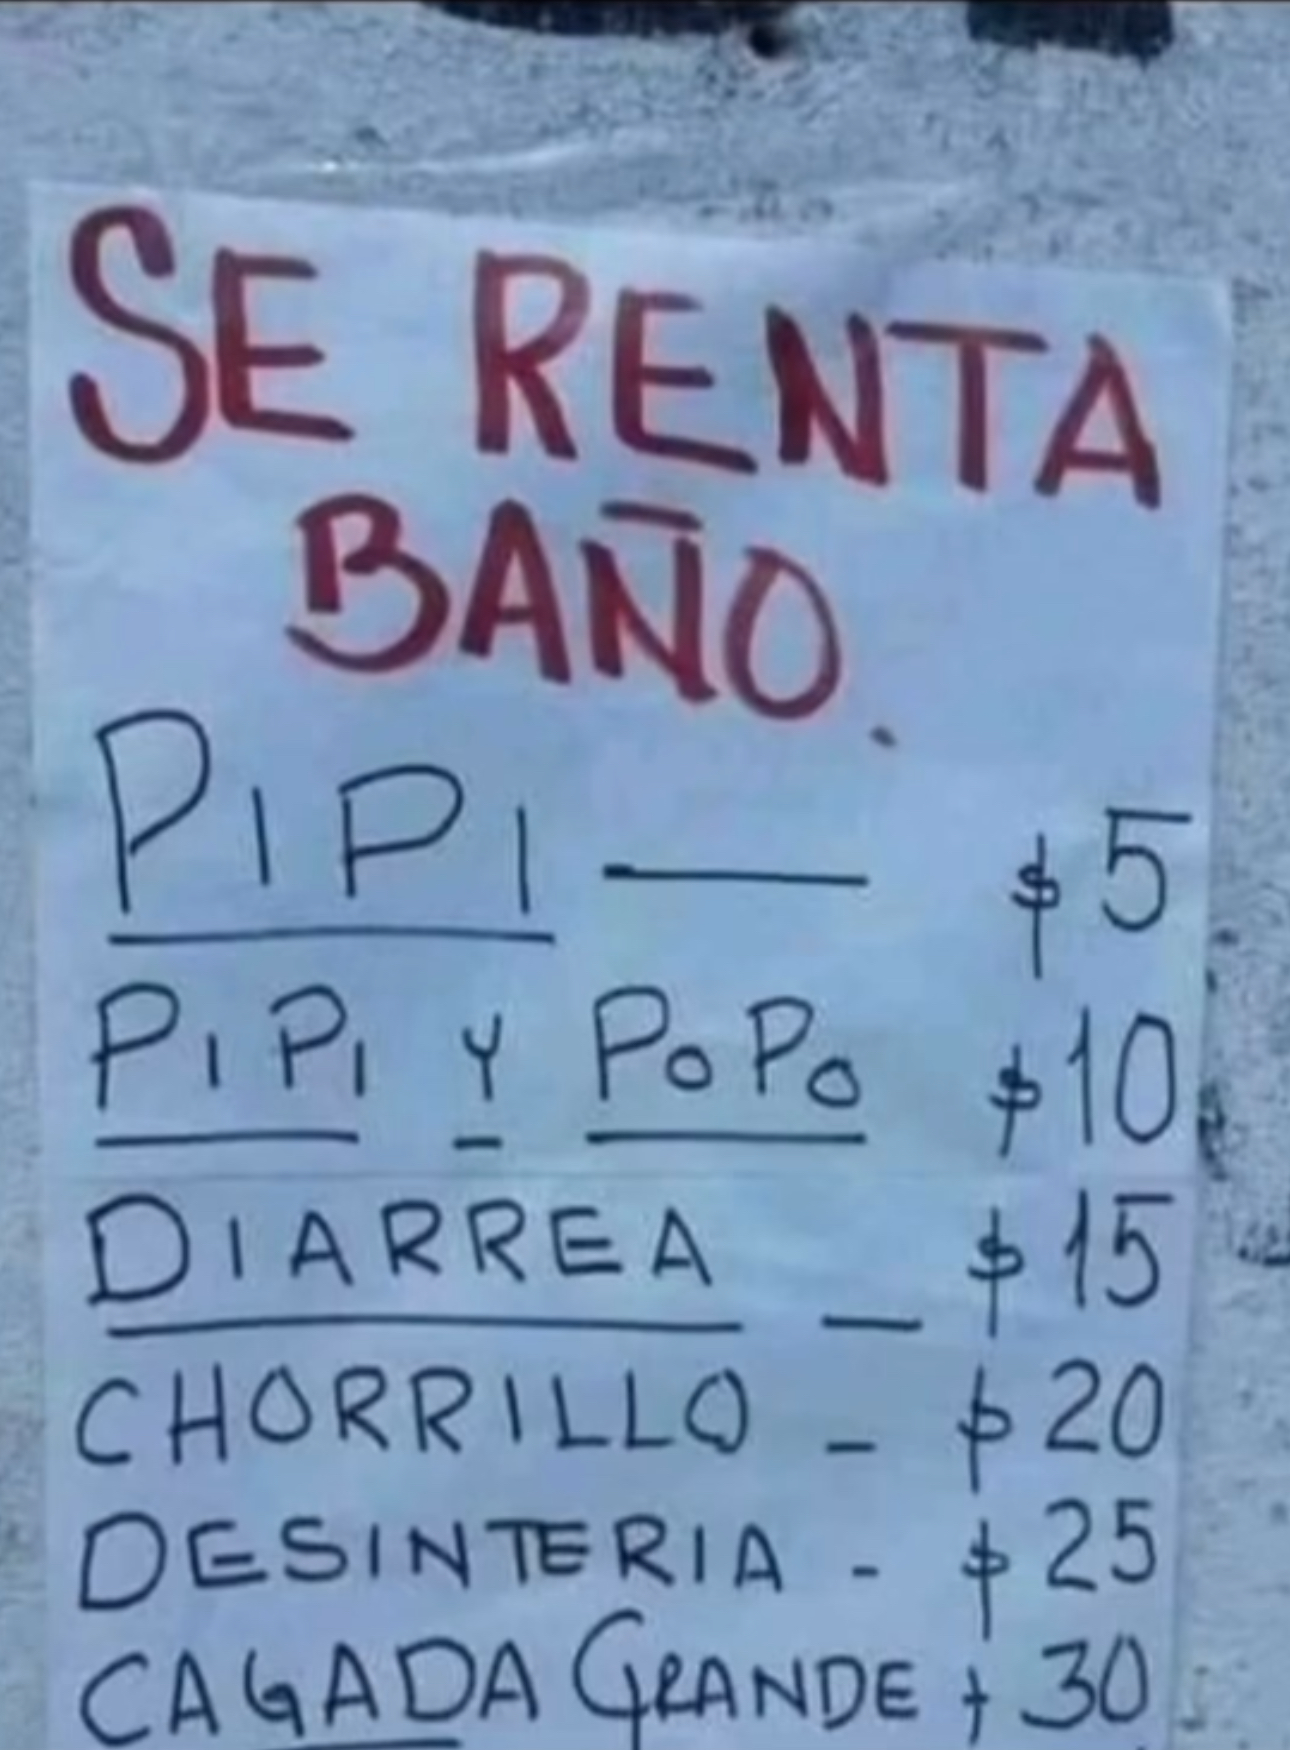 SE RENTA
BAÑO.
PIPI — $5
PIPI Y POPO $10
DIARREA — $15
CHORRILLO - $20
DESINTERIA - $25
CAGADA GRANDE + 30